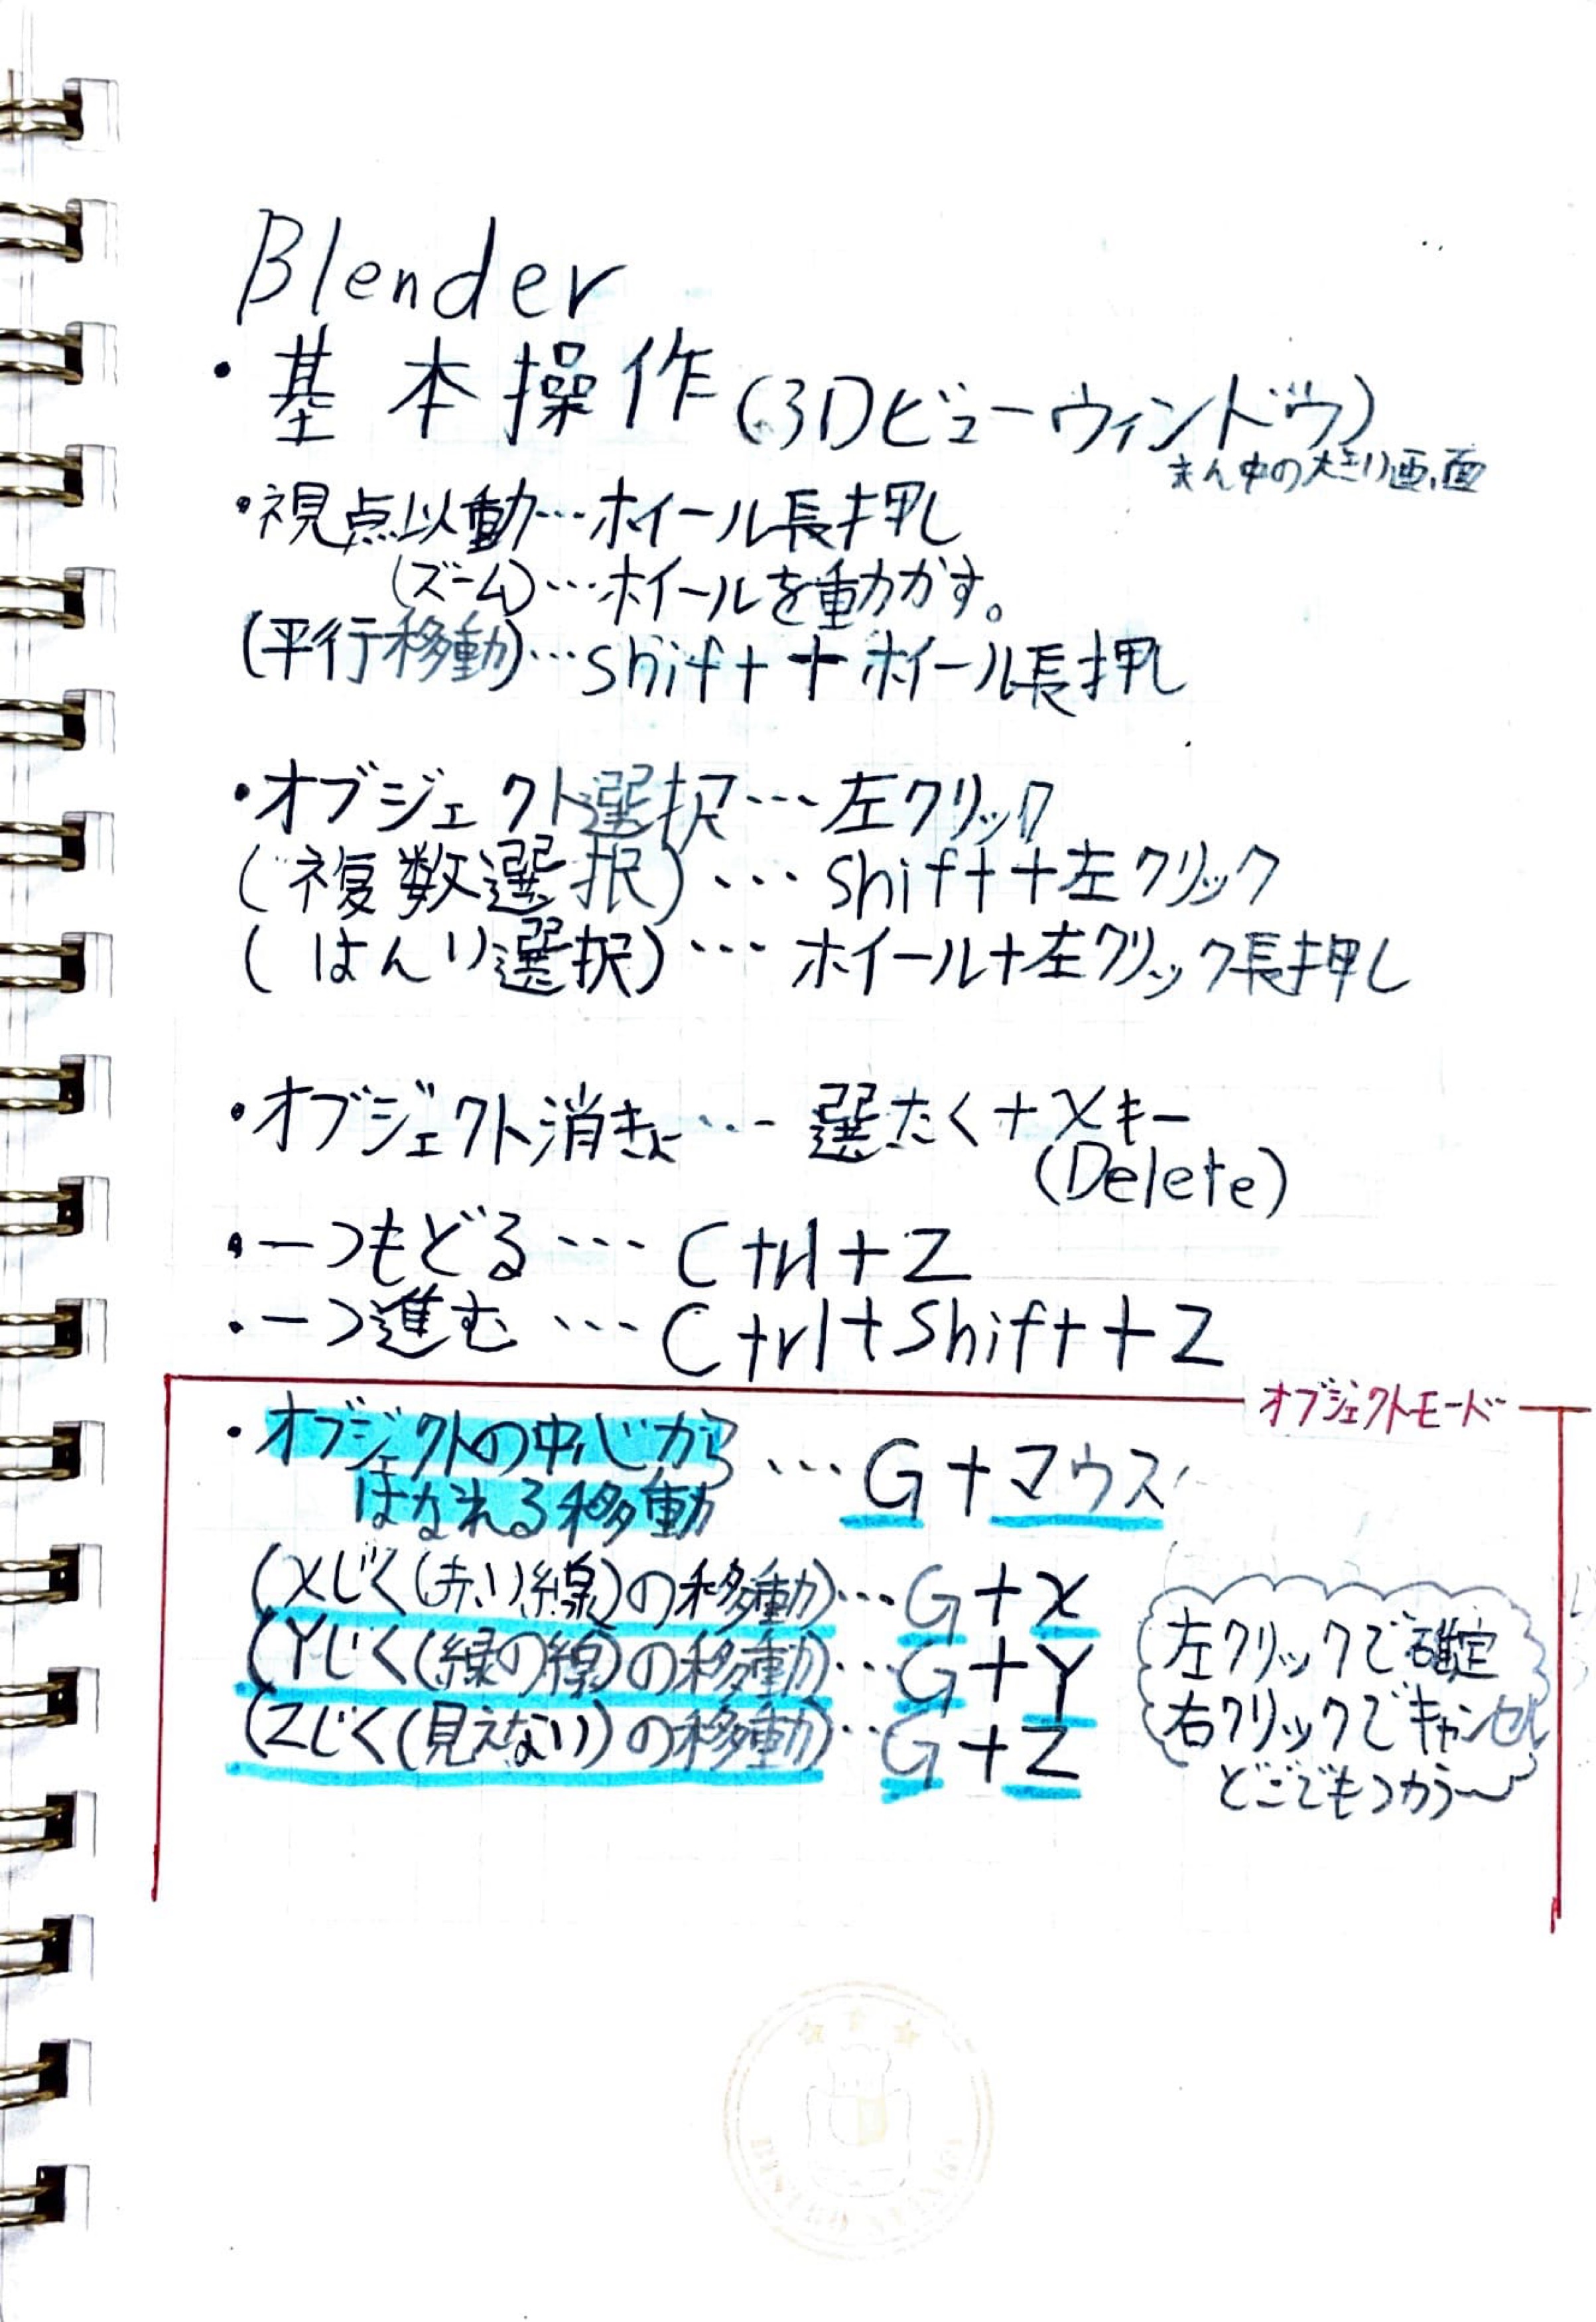 Blender
・基本操作(3Dビューウィンドウ)
まん中の大きい画面
・視点以動…ホイール長押し
(ズーム)…ホイールを動かす。
(平行移動)…shift+ホイール長押し
・オブジェクト選択…左クリック
(複数選択)…shift+左クリック
(はんい選択)…ホイール+左クリック長押し
・オブジェクト消きょ…選たく+Xキー
(Delete)
・一つもどる…Ctrl+Z
・一つ進む…Ctrl+Shift+Z
オブジェクトモード
・オブジェクトの中心から…G+マウス
はなれる移動
(Xじく(赤い線)の移動)…G+X
(Yじく(緑の線)の移動)…G+Y
(Zじく(見えない)の移動)…G+Z
左クリックで確定
右クリックでキャンセル
どこでもつかう〜